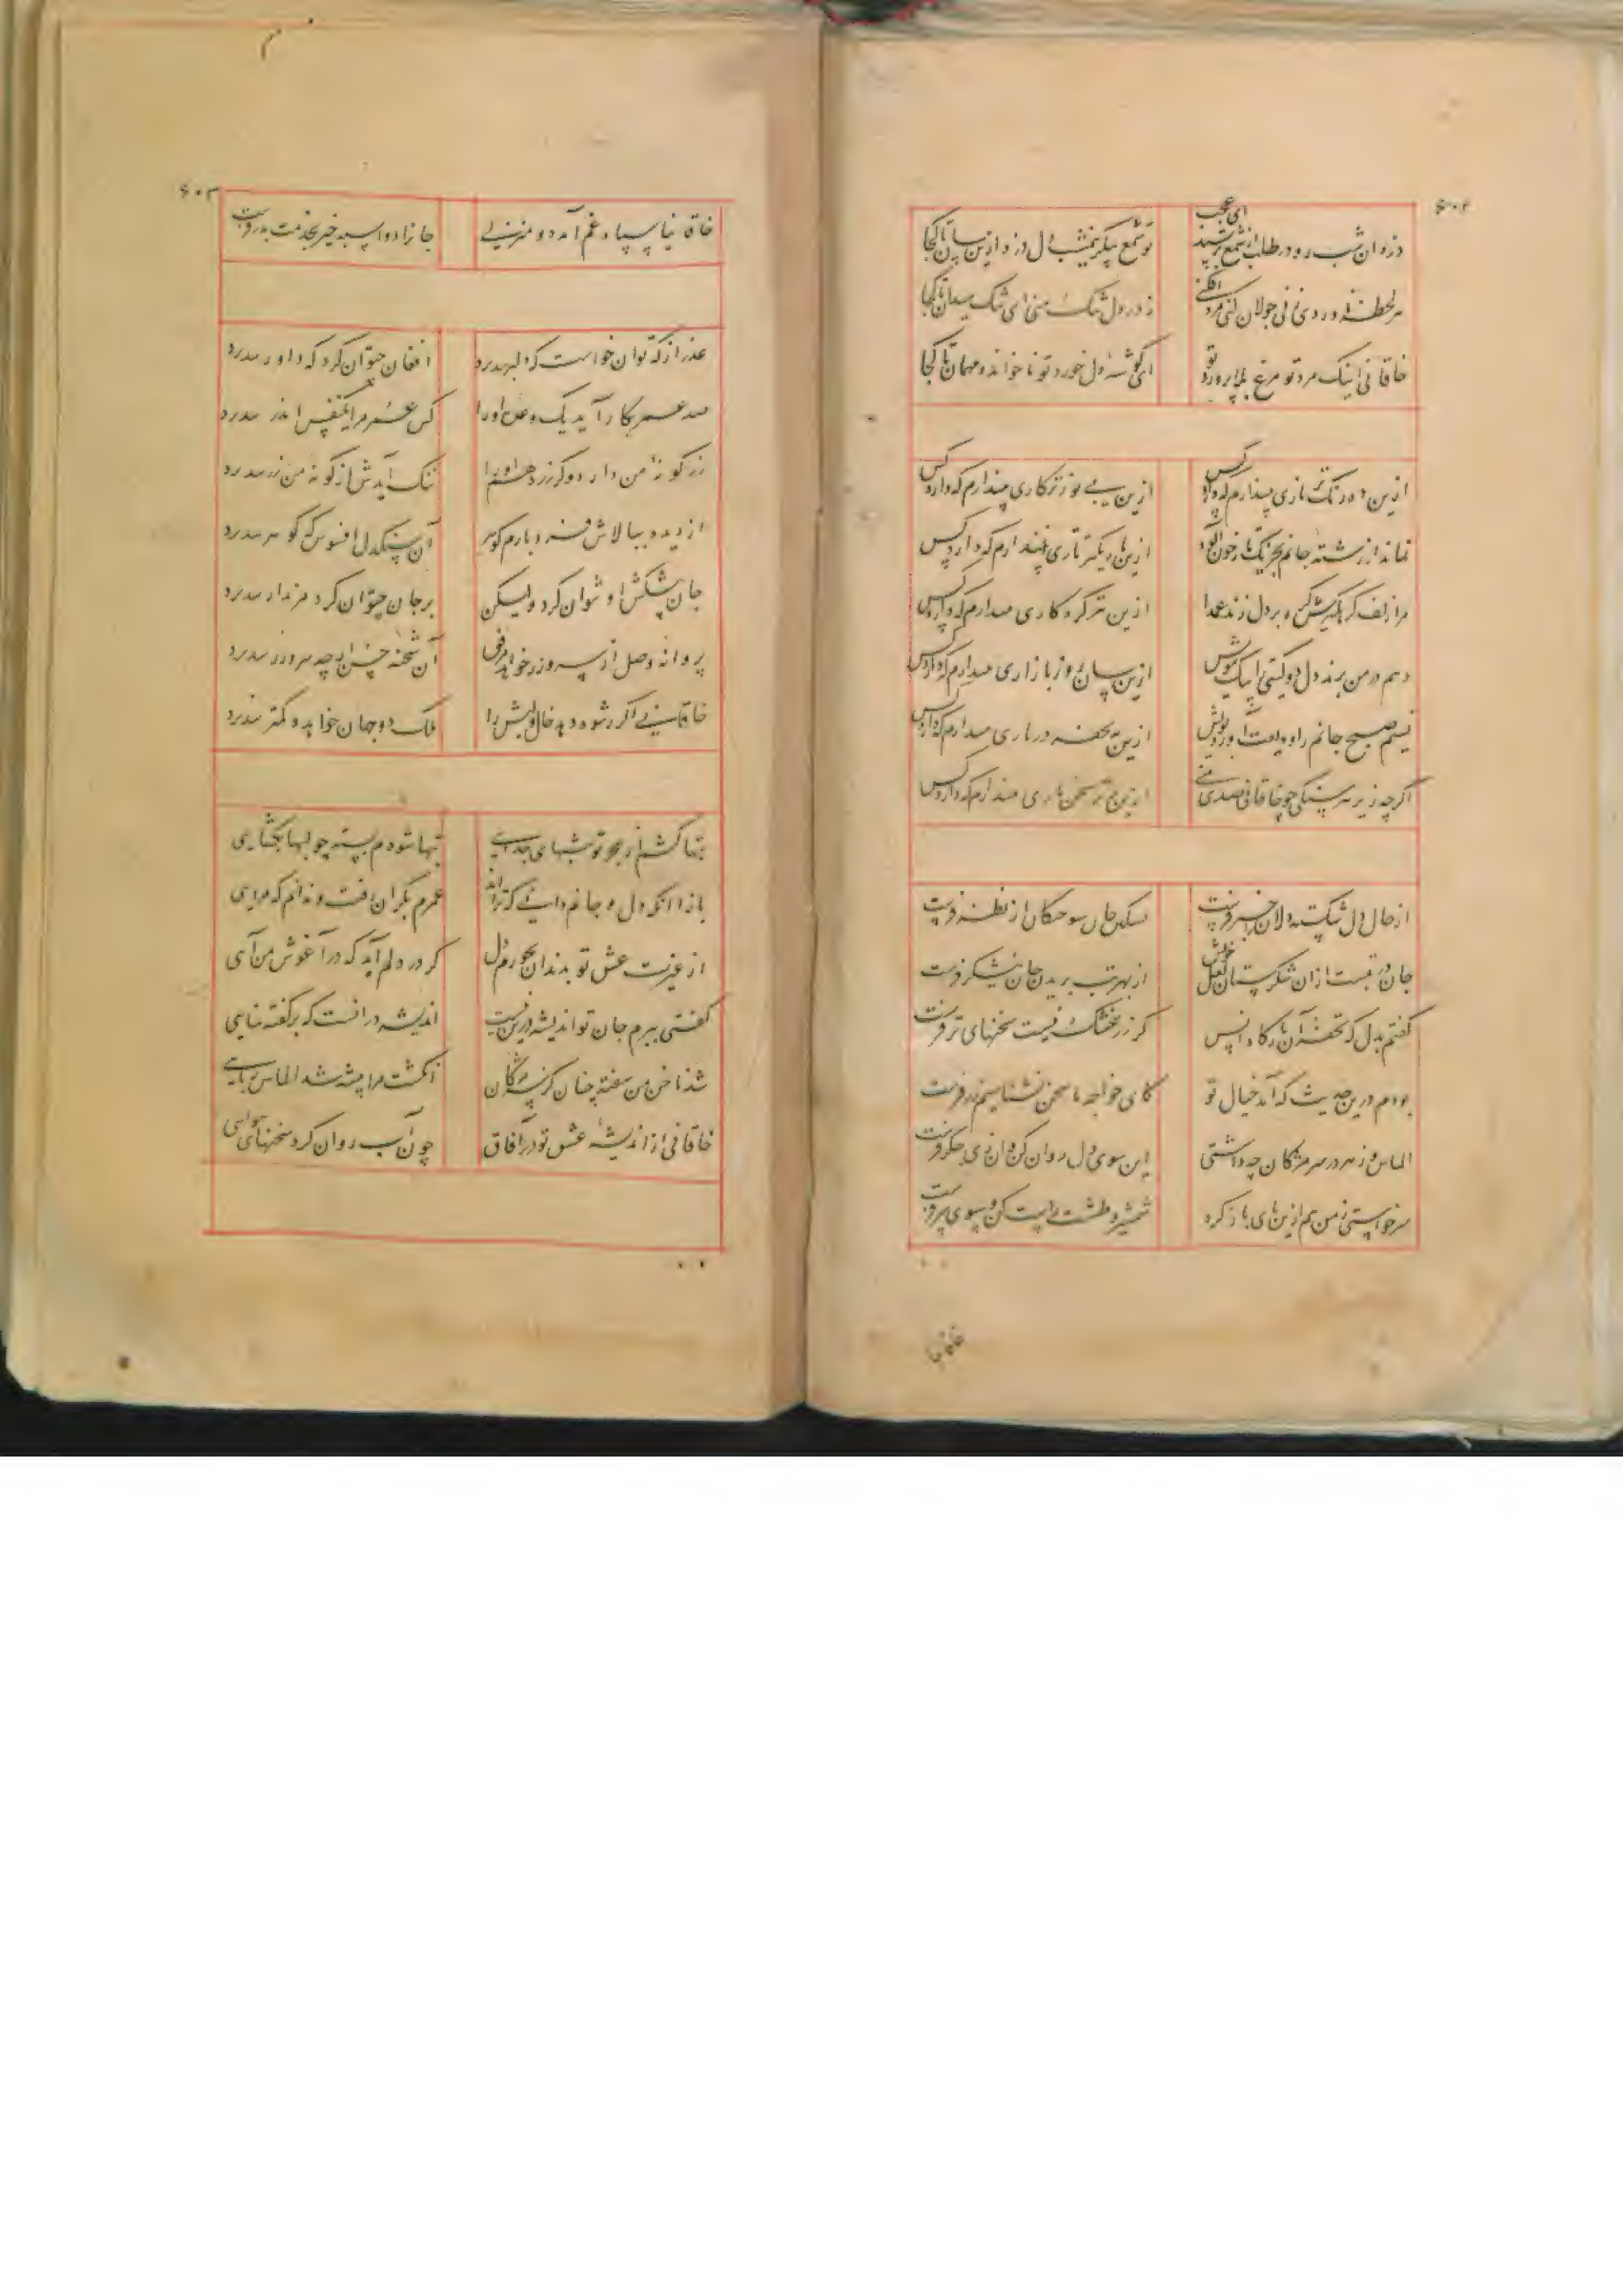 ۶۰۲
ای عجب
دزدان شب رو در طلب از شمع ترسند
تو شمع پیکر نیمشب دل دزدی از ینسان تا کجا
هر لحظه ناوردی زنی جولان کنی مردافکنی
نه در دل تنگ منی ای تنگ میدان تا کجا
خاقانی اینک مرد تو مرغ بلاپرورد تو
ای گوشهٔ دل خورد تو ناخوانده مهمان تا کجا
ازین ده رنگ تر یاری نپندارم که دارد کس
ازین بی نورتر کاری نپندارم که دارد کس
نماند از رشته جانم بجز یکتار خون آلود
ازین باریکتر تاری نپندارم که دارد کس
مرا زلف گره گیرش گره بر دل زند عمدا
ازین تر گره کاری نپندارم که دارد کس
دهم در من برند دل دو گیتی را بیک مویش
ازین سان روز بازاری نپندارم که دارد کس
نسیم صبح جانم را ودیعت آورد بویش
ازین به تحفه در باری نپندارم که دارد کس
اگرچه زیر هر سنگی چو خاقانی صد یعنی
ازین تر سخن باری نپندارم که دارد کس
از حال دل شکسته دلان را خبر فرست
تسکین جان سوختگان از نظر فرست
جان در تبست از آن شکرستان لعل خویش
از بهر تب بریدن جان نیشکر فرست
گفتم بدل که تحفه آن بارگاه انس
گر زر خشک نیست سخنهای تر فرست
بودم درین حدیث که آمد خیال تو
کای خواجه ما سخن نشناسیم زر فرست
الماس و زهر در سر مژگان چه داشتی
این سوی دل روان کن و آن زی جگر فرست
سر خواستی ز من هم ازین پای باز گرد
شمشیر و طشت راست کن و سوی سر فرست
خاقانیا
۶۰۳
خاقانیا سپاه غم آمد دو منزلی
جان را دو اسپه خیز بخدمت بدر فرست
عذر از که توان خواست که دلبر نپذیرد
افغان چتوان کرد که داور نپذیرد
صد عمر بکار آید یک وعده او را
کس عمر مرا یکنفس اندر نپذیرد
زر گونه من دارد و گر زر دهم او را
ننگ آیدش از گونه من زر نپذیرد
از دیده ببالاش فرو بارم گوهر
آن سنگدل افسوس که گوهر نپذیرد
جان پیشکش او نتوان کرد ولیکن
بر جان چتوان کرد مزور نپذیرد
پروانه وصل از پی روز خواهد دل
آن شحنه حسن ارچه مزور نپذیرد
خاقانی اگر رشوه دهد خال و لبش را
ملک دو جهان خواهد و کمتر نپذیرد
تبها کشم از هجر تو شبهای جدائی
تبها شودم بسته چو لبها بگشایی
باز آ که دل و جانم دانی که ترا اند
عمرم بکران رفت و ندانم که مرایی
از غیرت عشق تو بدندان بخورم دل
گر در دلم آید که در آغوش من آیی
گفتی ببرم جان تو اندیشه درین نیست
اندیشه در آنست که بر گفته نپایی
شد ناخن من سفته چنان کز سر مژگان
انگشت مرا پیشه شد الماس ربایی
خاقانی از اندیشهٔ عشق تو در آفاق
چون آب روان کرد سخنهای هوایی